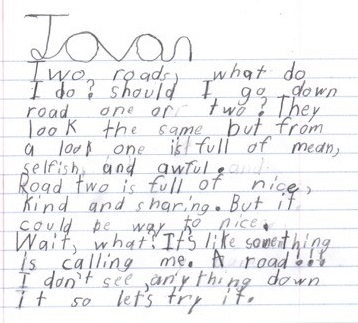 Jovan
Two roads, what do
I do? should I go down
road one or two? They
look the same but from
a look one is full of mean,
selfish and awful.
Road two is full of nice,
kind and sharing. But it
could be way to nice.
Wait, what? It's like something
is calling me. A road!!!
I don't see anything down
it so let's try it.